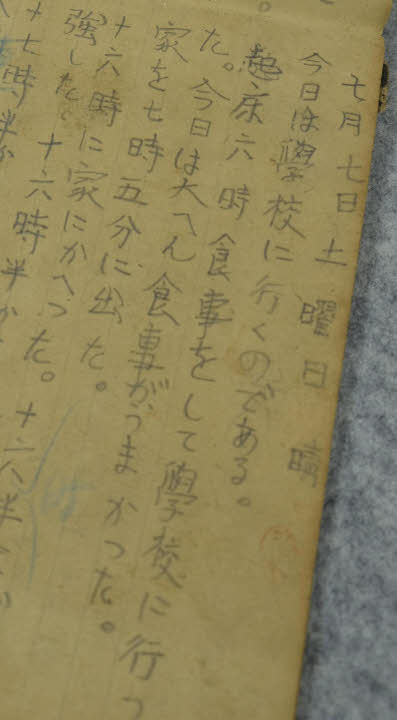 七月七日土曜日 晴
今日は學校に行くのである。
起床六時食事をして學校に行つ
た。今日は大へん食事がうまかつた。
家を七時五分に出た。
十六時に家にかへつた。十六半
強した 十六時半か
十七時半か